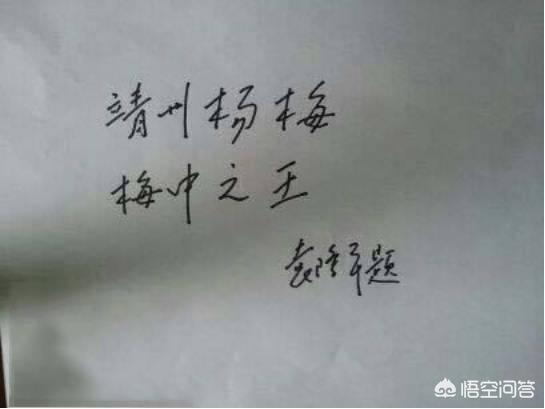 靖州杨梅
梅中之王
袁隆平题
悟空问答